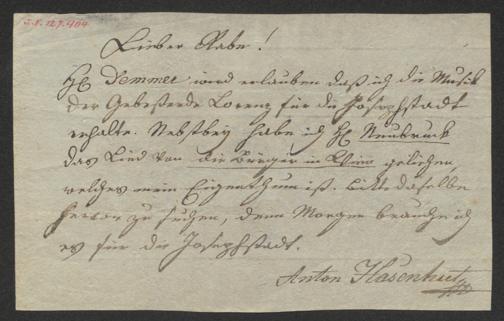 I.N. 127.404
Lieber Rabe!
H: Demmer wird erlauben daß ich die Musik
der Gebesserte Lorenz für die Josephstadt
erhalte. Nebstbey habe ich H: Neubruck
das Lied von die Bürger in Wien geliehen,
welches mein Eigenthum ist. Bitte daselbe
hervor zu suchen, denn Morgen brauche ich
es für die Josephstadt.
Anton Hasenhut